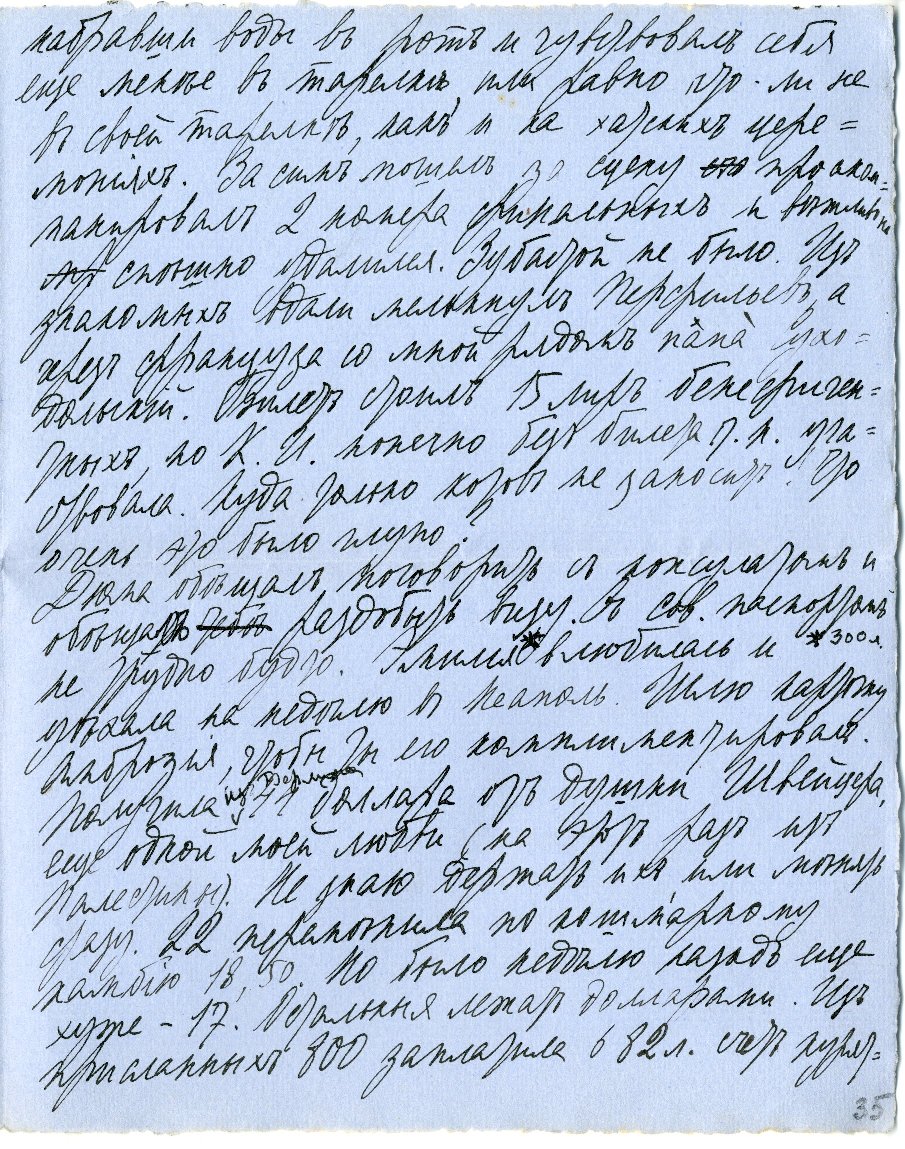 набравши воды въ ротъ и чувствовалъ себя
еще менѣе въ тарелкѣ или равно что-ли не
въ своей тарелкѣ, какъ и на хатскихъ цере=
монiяхъ. Засимъ пошелъ за сцену проакком-
панировалъ 2 номера финальныхъ и вѣжливо на
спѣшно удалился. Зубатой не было. Изъ
знакомыхъ вдали мелькнулъ Перфильевъ, а
чрезъ француза со мной рядомъ папà Сухо=
дольскiй. Билетъ стоилъ 15 лиръ бенефицiан=
тныхъ, но К. И. конечно безъ билета т. к. уча=
ствовала. Куда только козовъ не заноситъ! Что
очень это было глупо?
Дюка обѣщалъ поговорить съ консулатомъ и
обѣщалъ раздобыть визу. Съ сов. паспортомъ
не трудно будто. Эмилiя* влюбилась и *300 л.
уѣхала на недѣлю въ Неаполь. Шлю карточку
Амброзiя, чтобы Ты его комплиментировалъ.
Получила изъ Берлина 77 доллара отъ душки Швейцера,
еще одной моей любви (на этотъ разъ изъ
Палестины). Не знаю держать ихъ или мѣнять
сразу. 22 перемѣнила по кошмарному
камбiю 18,50. Но было недѣлю назадъ еще
хуже – 17. Остальныя лежатъ долларами. Изъ
присланныхъ 800 заплатила 682 л. счетъ
35